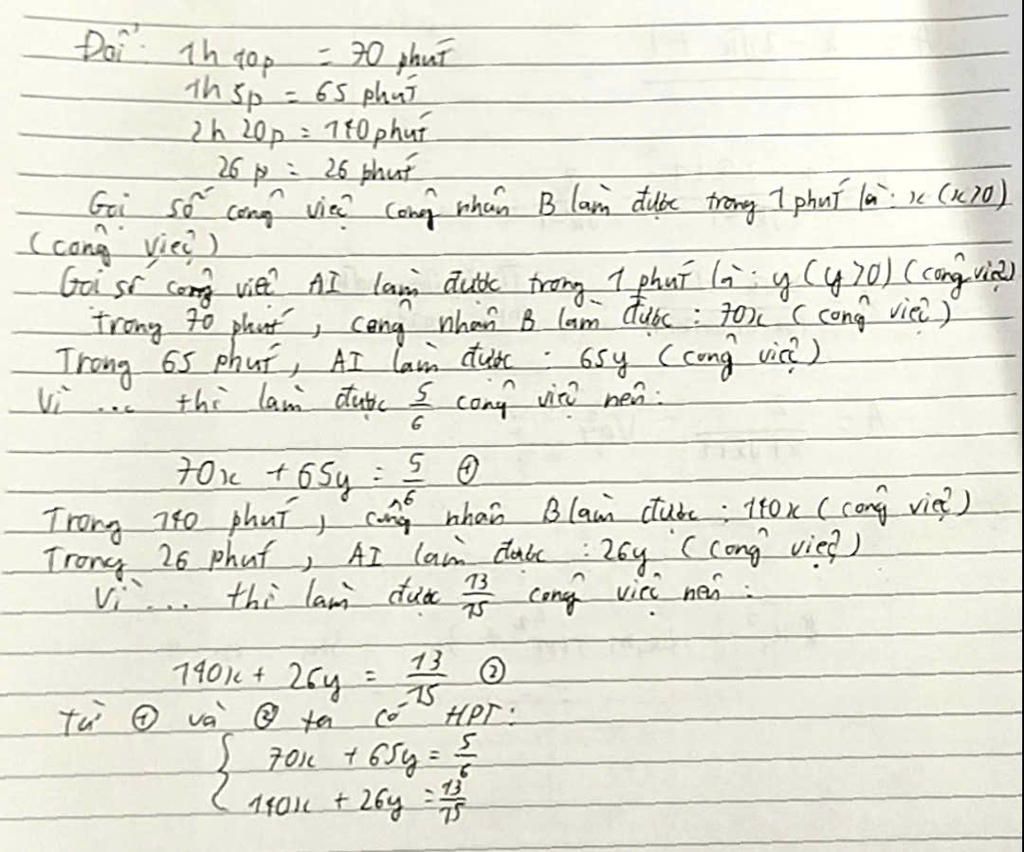 Đổi: 1h 10p = 70 phút
1h 5p = 65 phút
2h 20p = 140 phút
26 p = 26 phút
Gọi số công việc công nhân B làm được trong 1 phút là: x (x>0)
(công việc)
Gọi số công việc AI làm được trong 1 phút là: y (y>0) (công việc)
Trong 70 phút, công nhân B làm được: 70x (công việc)
Trong 65 phút, AI làm được: 65y (công việc)
Vì ... thì làm được 5/6 công việc nên:
70x + 65y = 5/6 ①
Trong 140 phút, công nhân B làm được: 140x (công việc)
Trong 26 phút, AI làm được: 26y (công việc)
Vì ... thì làm được 13/15 công việc nên:
140x + 26y = 13/15 ②
Từ ① và ② ta có HPT:
{ 70x + 65y = 5/6
140x + 26y = 13/15